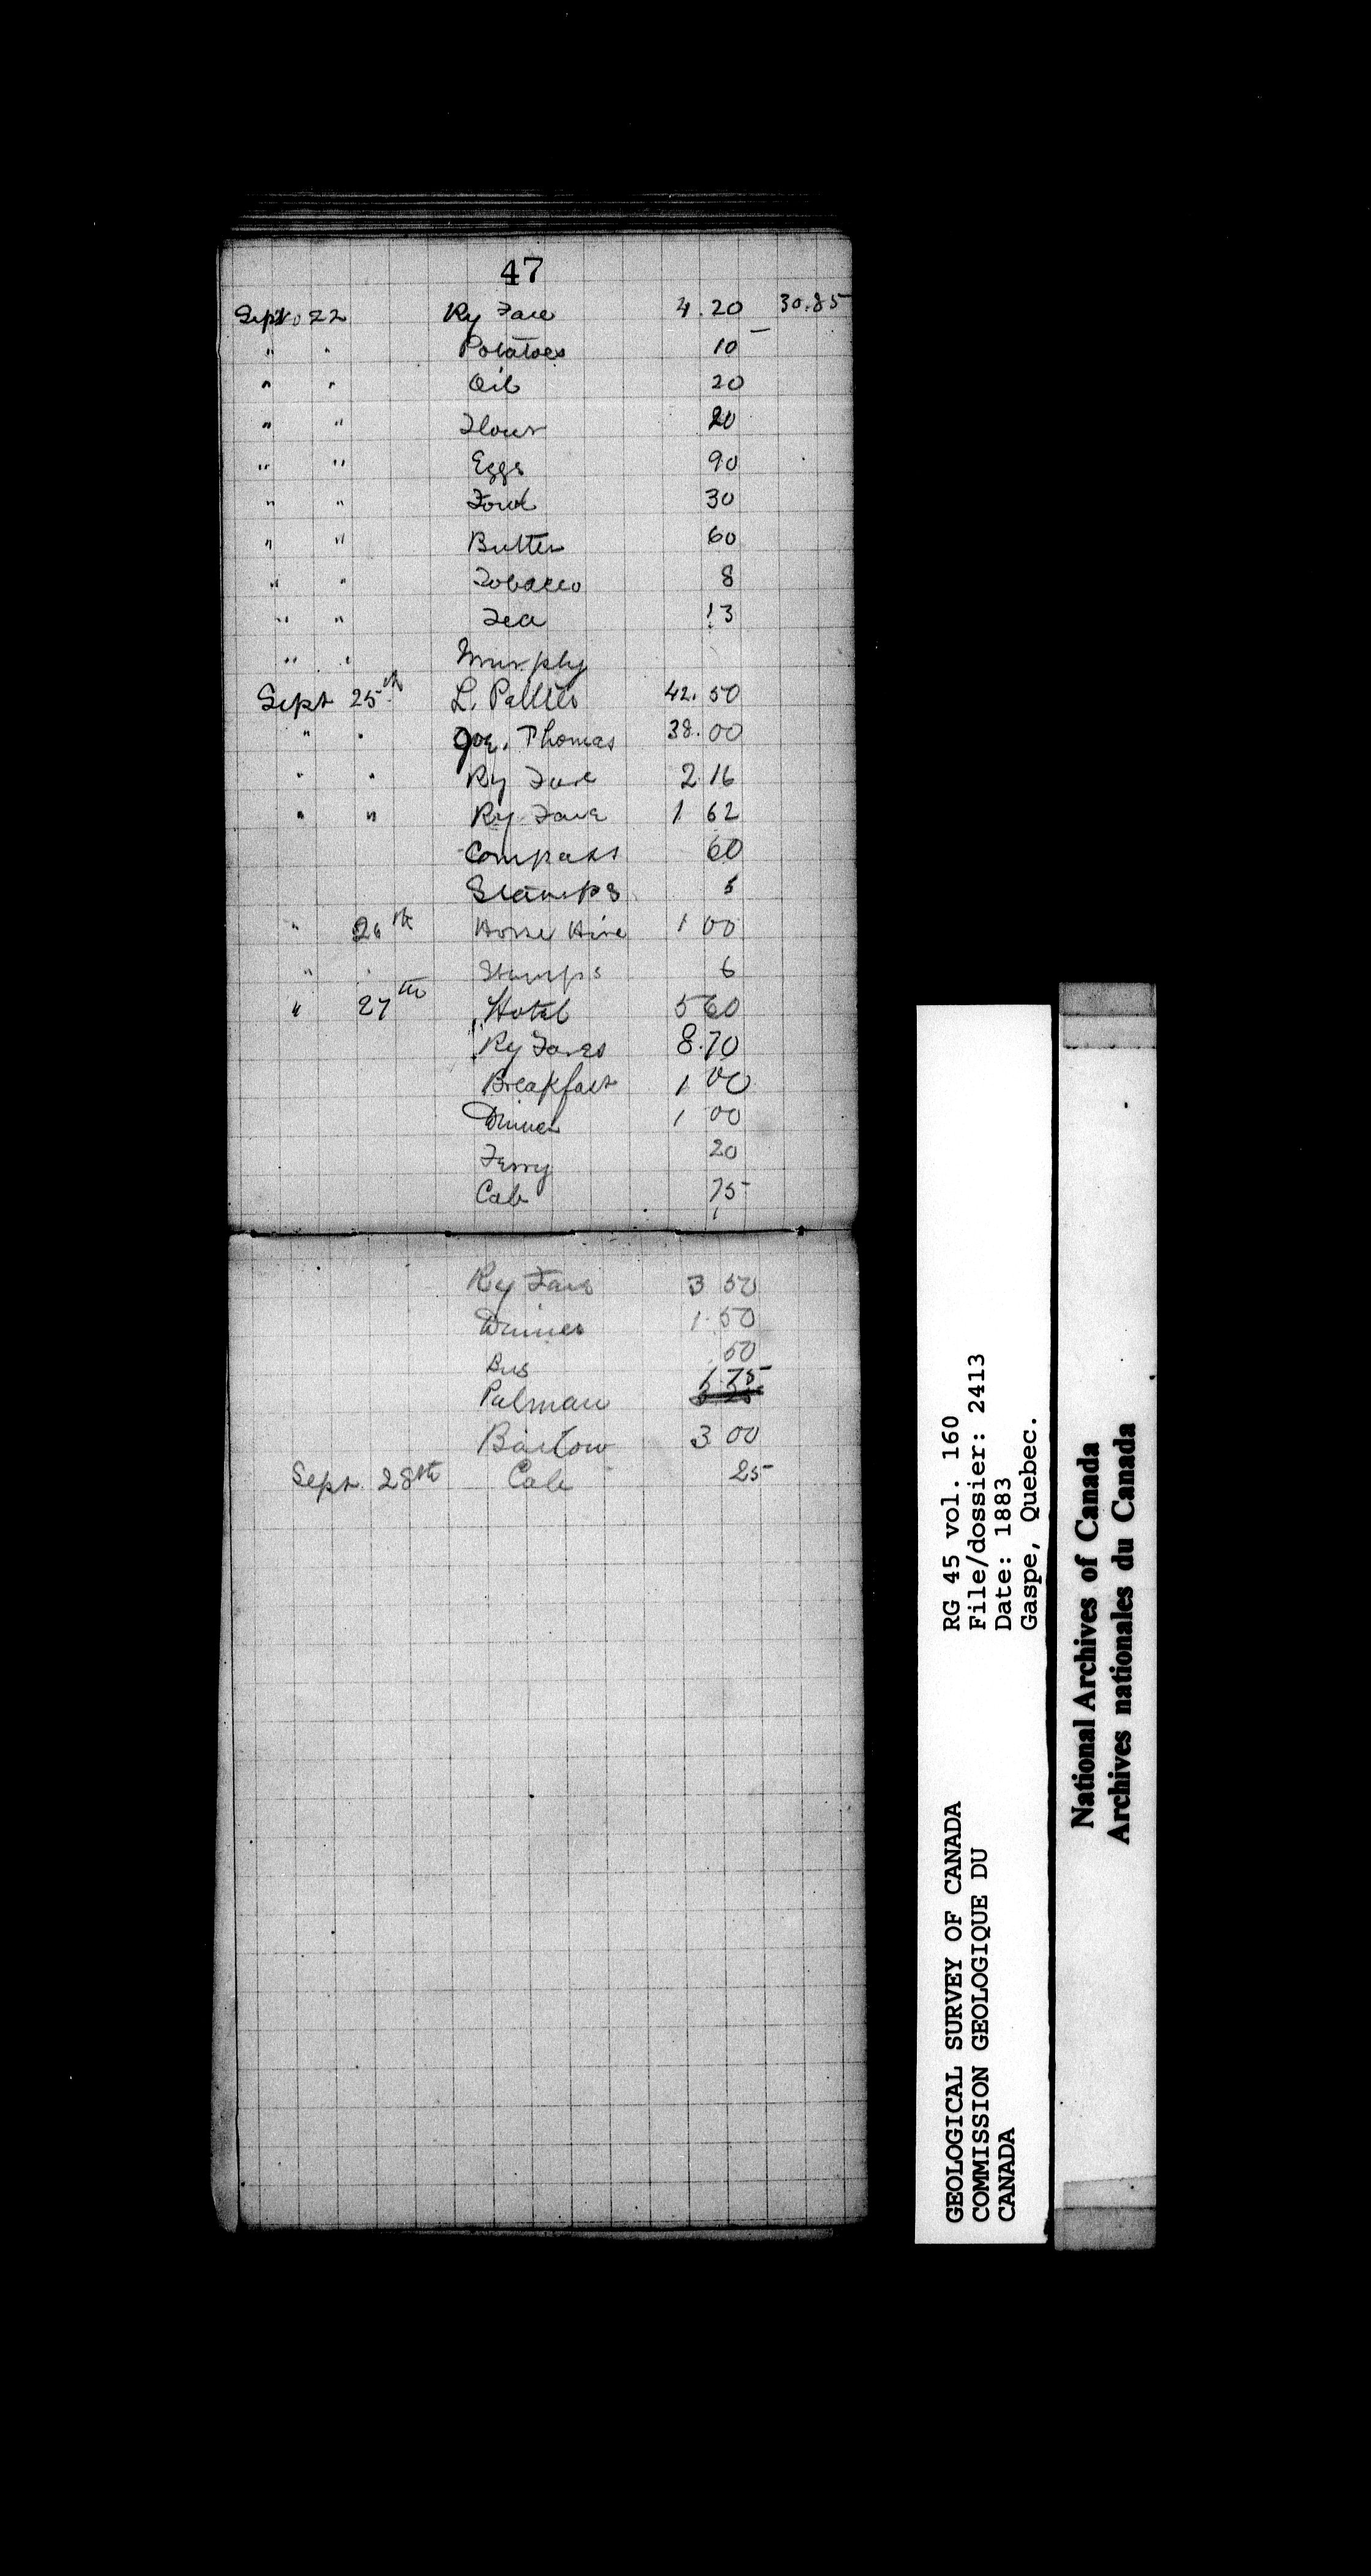 47
Sept. 22 Ry Fare 4.20 30.85
" " Potatoes 10
" " Oil 20
" " Flour 20
" " Eggs 90
" " Fowl 30
" " Butter 60
" " Tobacco 8
" " Tea 13
" " Murphy
Sept 25th L. 42.50
" " Joe. Thomas 38.00
" " Ry Fare 2 16
" " Ry Fare 1 62
Compass 60
Stamps 5
" 26th Horse Hire 1 00
" " Stamps 6
" 27th Hotel 5 60
Ry Fares 8.70
Breakfast 1 00
Dinner 1 00
Ferry 20
Cab 75
Ry Fare 3 50
Dinner 1.50
Bus .50
Pulman 1.75
Barlow 3 00
Sept. 28th Cab 25
GEOLOGICAL SURVEY OF CANADA RG 45 vol. 160
COMMISSION GEOLOGIQUE DU File/dossier: 2413
CANADA Date: 1883
Gaspe, Quebec.
National Archives of Canada
Archives nationales du Canada